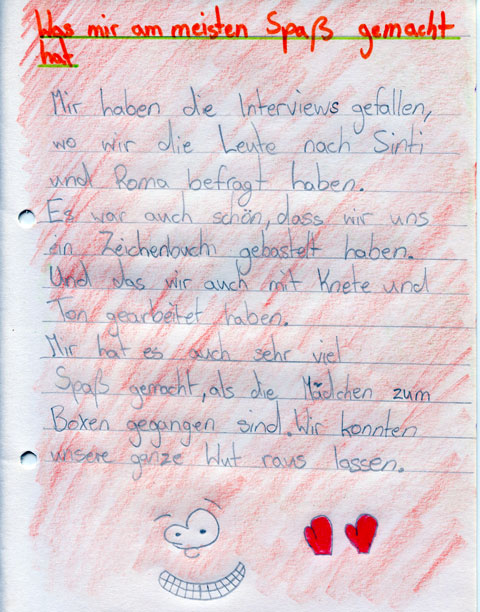 Was mir am meisten Spaß gemacht
hat
Mir haben die Interviews gefallen,
wo wir die Leute nach Sinti
und Roma befragt haben.
Es war auch schön, dass wir uns
ein Zeichenbuch gebastelt haben.
Und das wir auch mit Knete und
Ton gearbeitet haben.
Mir hat es auch sehr viel
Spaß gemacht, als die Mädchen zum
Boxen gegangen sind. Wir konnten
unsere ganze Wut raus lassen.